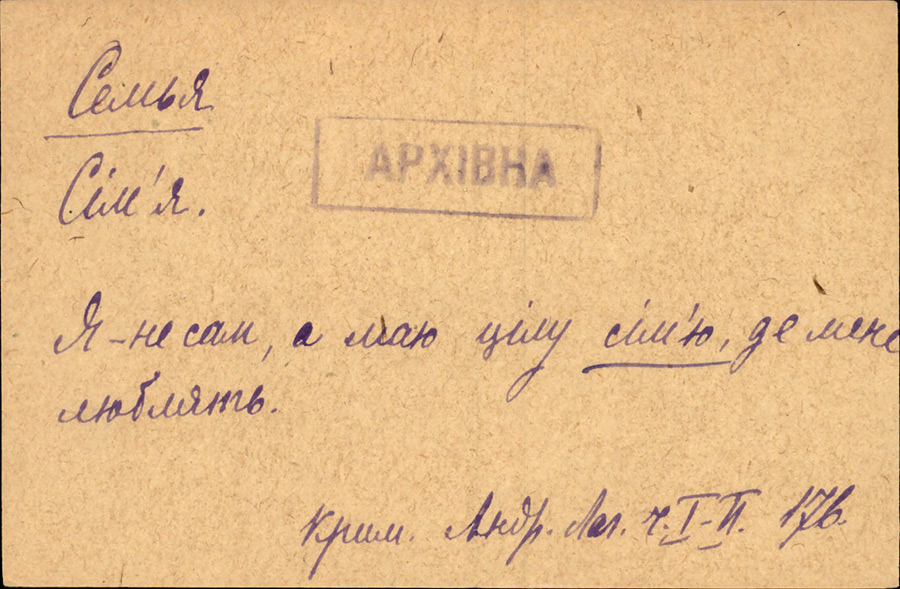 Семья
АРХІВНА
Сім'я.
Я – не сам, а маю цілу сім'ю, де мене
люблять.
Крим. Андр. Лаг. ч. I–II. 176.